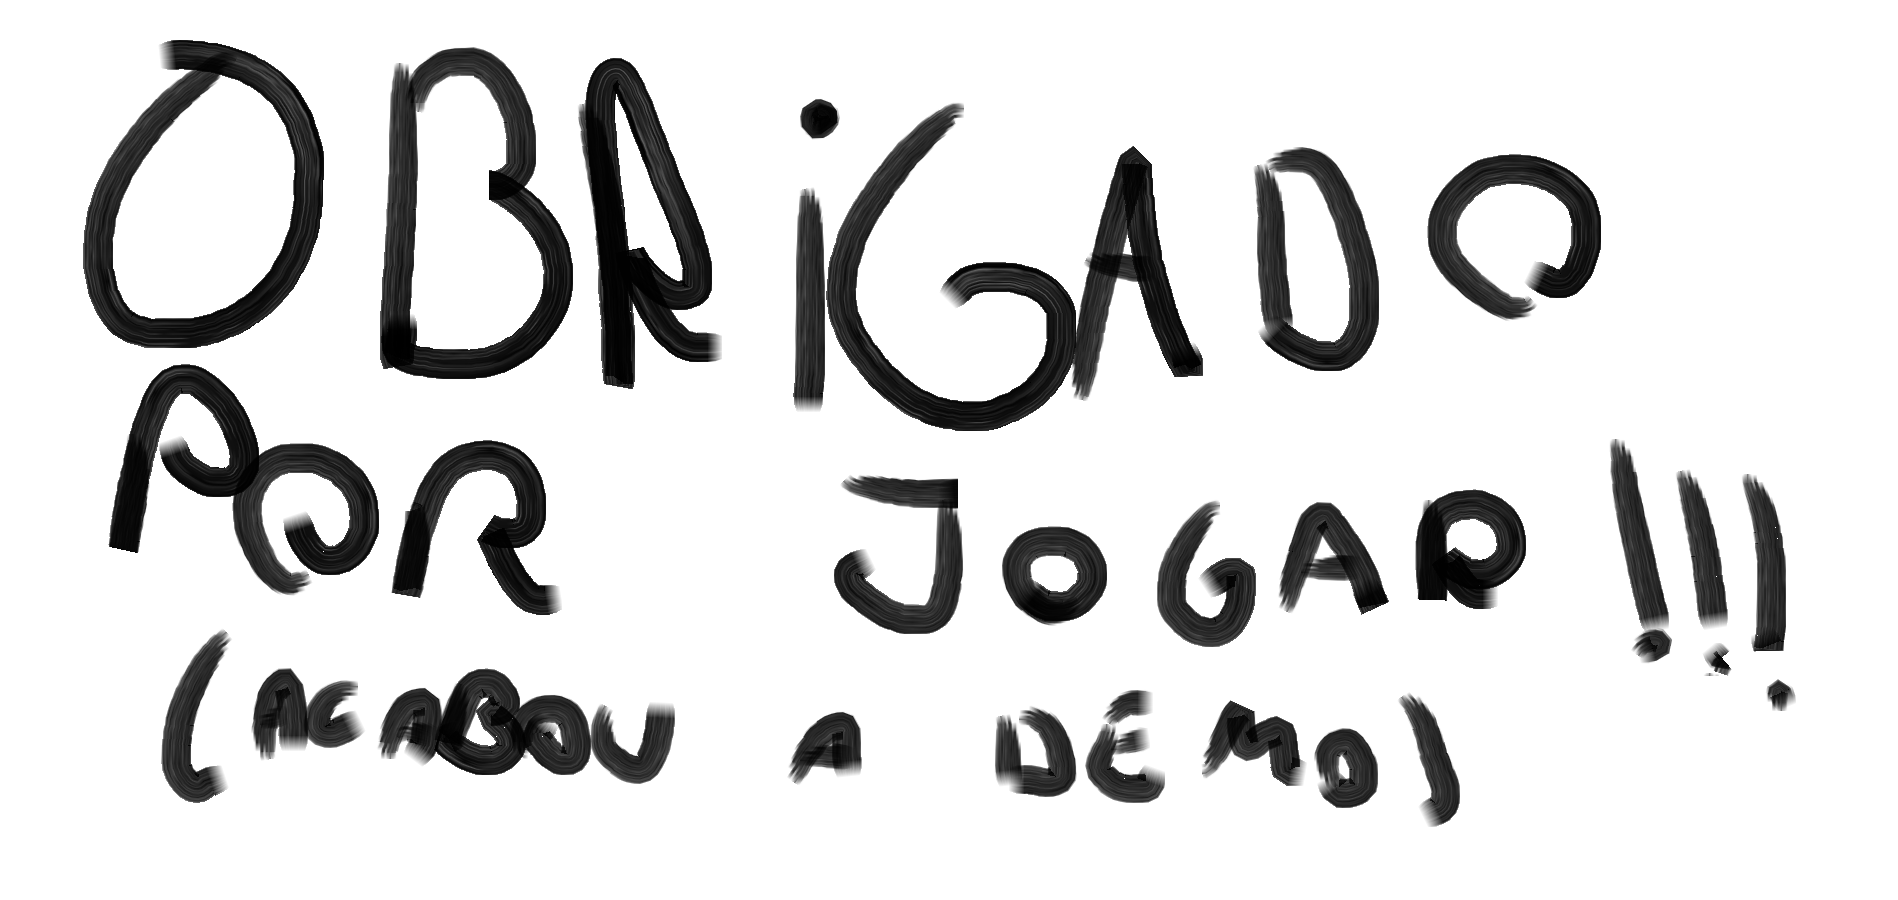 OBRiGADO
POR JOGAR!!!
(ACABOU A DEMO)